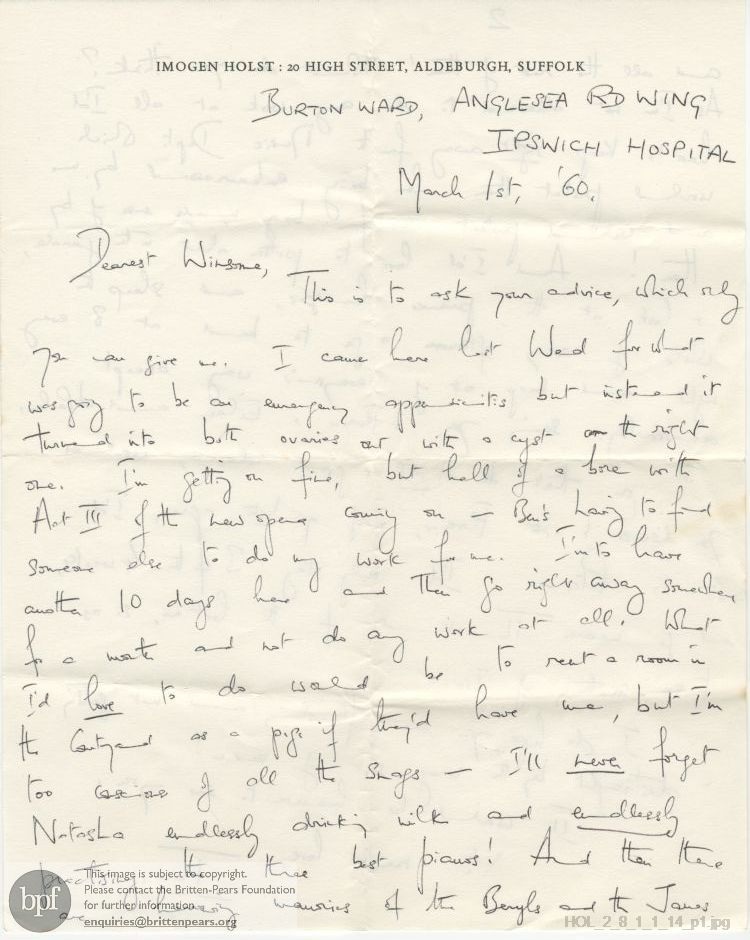 IMOGEN HOLST : 20 HIGH STREET, ALDEBURGH, SUFFOLK
BURTON WARD, ANGLESEA RD WING
IPSWICH HOSPITAL
March 1st, '60.
Dearest Winsome,
This is to ask your advice, which only
you can give me. I came here last Wed for what
was going to be an emergency appendicitis but instead it
turned into both ovaries out with a cyst on the right
one. I'm getting on fine, but hell of a bore with
Act III of the new opera coming on — Ben's having to find
someone else to do my work for me. I'm to have
another 10 days here and then go right away somewhere
for a month and not do any work at all. What
I'd love to do would be to rent a room in
the Courtyard as a p.g. if they'd have me, but I'm
too conscious of all the snags — I'll never forget
Natasha endlessly drinking milk and endlessly
practising the three best pianos! And then there
are memories of the Beryls and the James
This image is subject to copyright.
Please contact the Britten-Pears Foundation
for further information
enquiries@brittenpears.org
bpf
HOL_2_8_1_1_14_p1.jpg